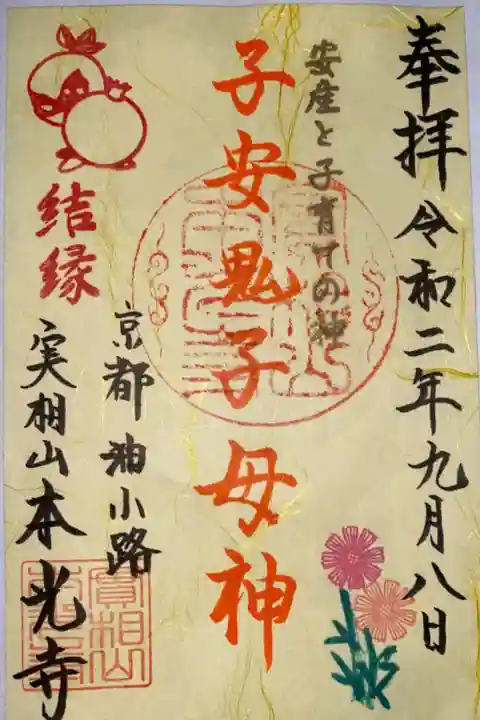 奉拝 令和二年九月八日
安産と子育ての神
子安鬼子母神
京都 油小路
結縁
実相山本光寺
實相山